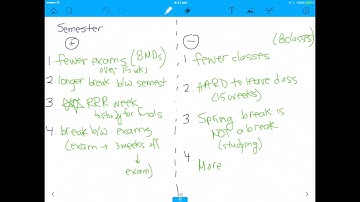 9:41 AM
Semester
+
1 fewer exams (8 MDs)
over 15 wks
2 longer break b/w semest
3 RRR week
↳ study for finals
4 break b/w exams
(exam → 3 weeks off
↓
exam)
−
(8 classes)
1 fewer classes
2 HARD to leave class
(15 weeks)
3 Spring break is
NOT a break
(studying)
4. More